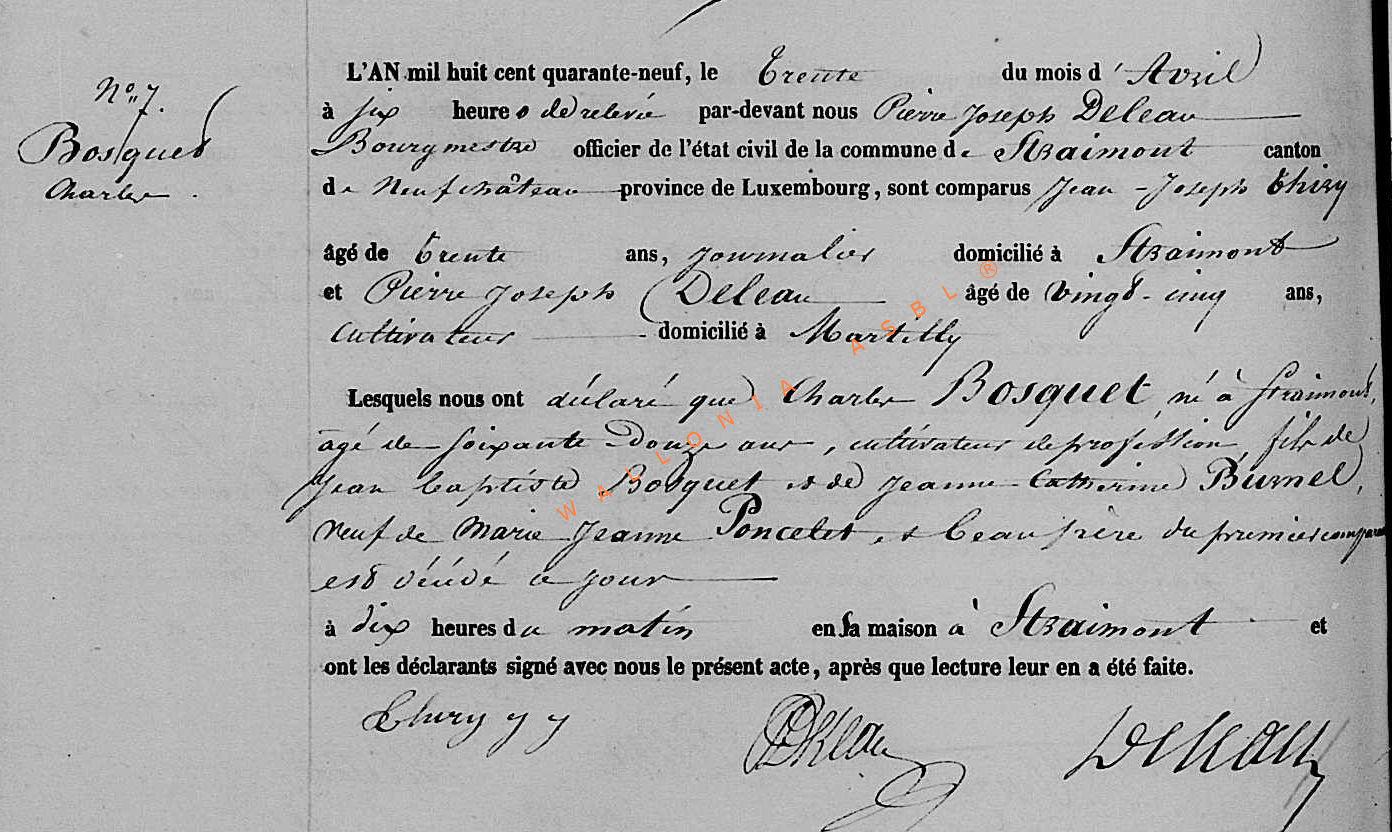 N° 7.
Bosquet
Charles.
L'AN mil huit cent quarante-neuf, le Trente du mois d'Avril
à six heures de relevée par-devant nous Pierre Joseph Deleau
Bourgmestre officier de l'état civil de la commune de Straimont canton
de Neufchâteau province de Luxembourg, sont comparus Jean-Joseph Thiry
âgé de trente ans, journalier domicilié à Straimont
et Pierre Joseph Deleau âgé de vingt-cinq ans,
cultivateur domicilié à Martilly
Lesquels nous ont déclaré que Charles Bosquet, né à Straimont,
âgé de soixante Douze ans, cultivateur de profession, fils de
Jean Baptiste Bosquet et de Jeanne Catherine Burnel,
veuf de Marie Jeanne Poncelet, et beau père du premier comparant
est décédé ce jour
à dix heures du matin en sa maison à Straimont et
ont les déclarants signé avec nous le présent acte, après que lecture leur en a été faite.
Thiry J J
PJDeleau Deleau
WALLONIA ASBL ®